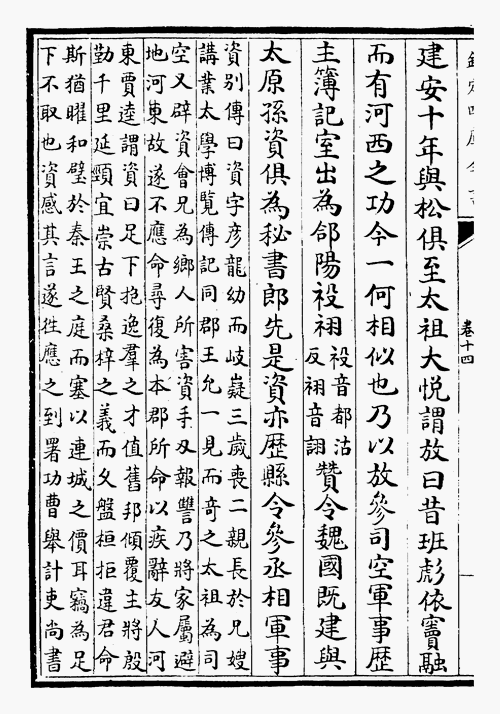 欽定四庫全書
卷十四
建安十年與松俱至太祖大悦謂放曰昔班彪依竇融
而有河西之功今一何相似也乃以放參司空軍事歴
主簿記室出為郃陽祋祤祋音都沽反祤音詡賛令魏國既建與
太原孫資俱為秘書郎先是資亦歴縣令參丞相軍事
資别傳曰資字彦龍幼而岐嶷三歲喪二親長於兄嫂
講業太學博覽傳記同郡王允一見而奇之太祖為司
空又辟資會兄為鄉人所害資手刃報讐乃將家屬避
地河東故遂不應命尋復為本郡所命以疾辭友人河
東賈逵謂資曰足下抱逸羣之才值舊邦傾覆主將殷
勤千里延頸宜崇古賢桑梓之義而久盤桓拒違君命
斯猶曜和璧於秦王之庭而塞以連城之價耳竊為足
下不取也資感其言遂往應之到署功曹舉計吏尚書